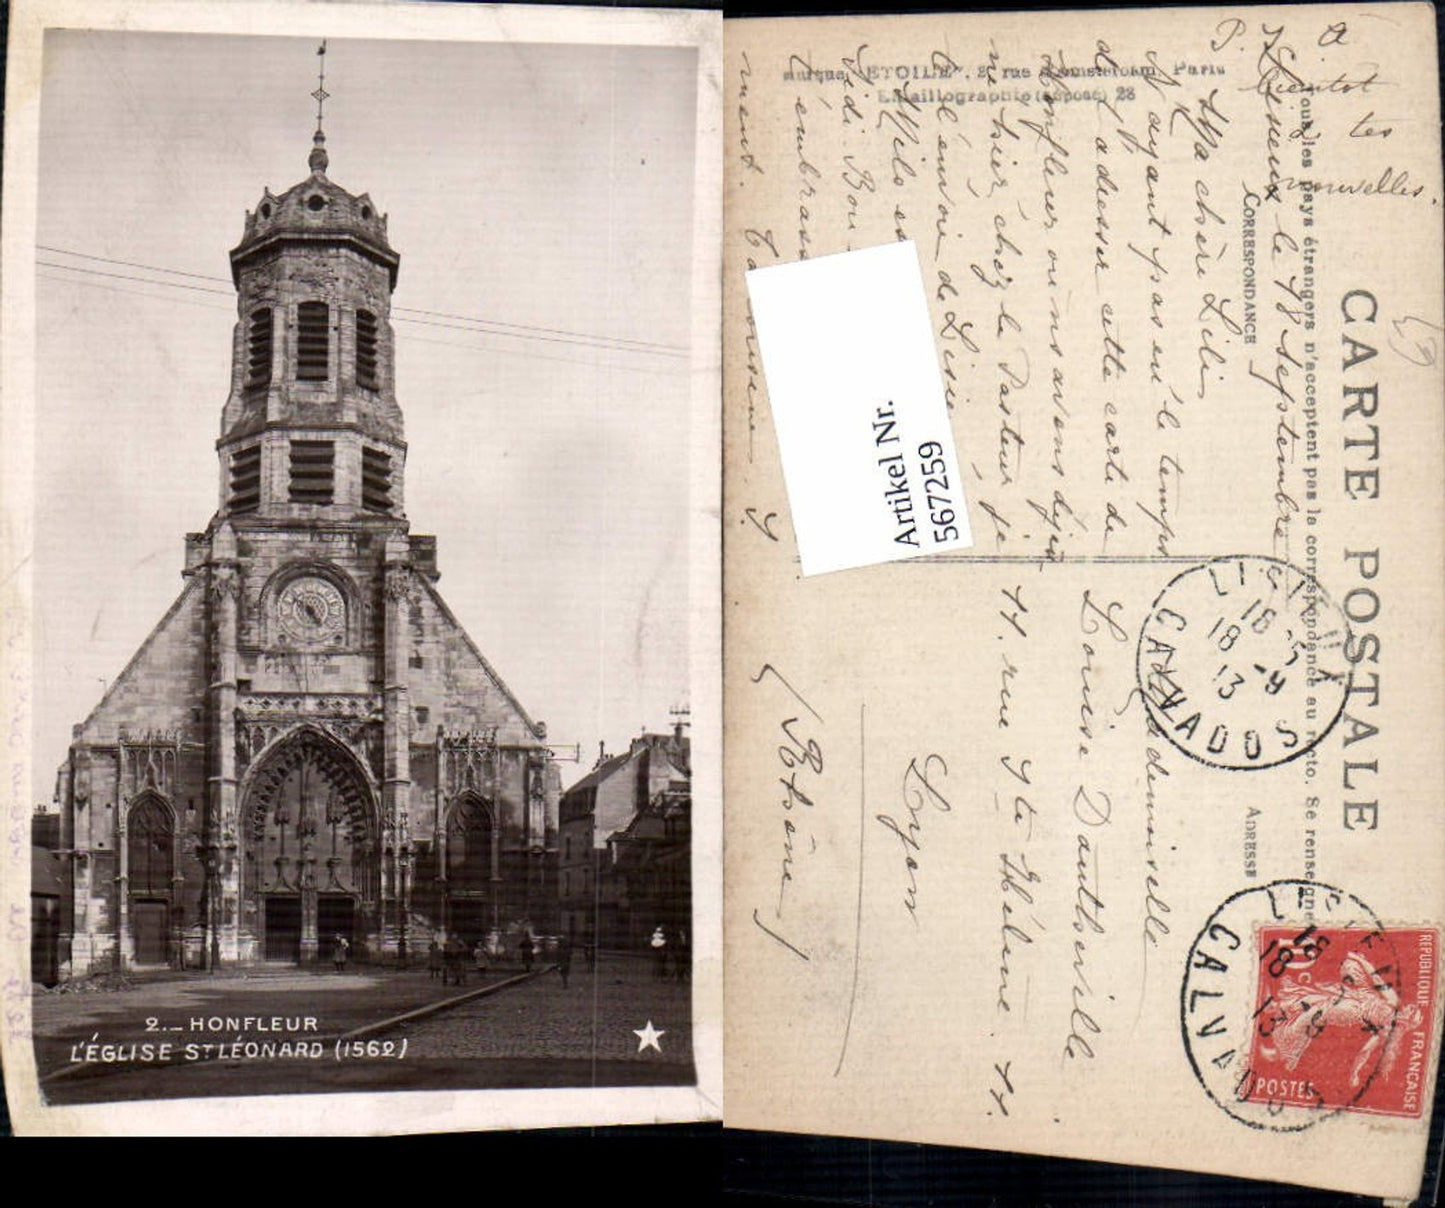 2._ HONFLEUR
L'ÉGLISE ST LÉONARD (1562)
CARTE POSTALE
Tous les pays étrangers n'acceptent pas la correspondance au recto. Se renseigne
CORRESPONDANCE
ADRESSE
Marque "ETOILE", rue d'Amsterdam, Paris
Emaillographie (déposé) 28
à
bientôt
tes
nouvelles.
Lisieux le 18 septembre
Ma chère Lili
N'ayant pas eu le temps
de t'adresser cette carte de
Honfleur où ns avons déjeu-
né hier, chez le Pasteur, je
te l'envoie de Lisieu
Milo es
Bon
t'embrass
ment.
Mademoiselle
Louise Dautheville
11. rue Ste Hélène. 11.
Lyon
(Rhône)
LISIEUX
18 - 9
13
CALVADOS
LISIEUX
18 - 9
13
CALVADOS
REPUBLIQUE FRANÇAISE
10 c
POSTES
Artikel Nr.
567259